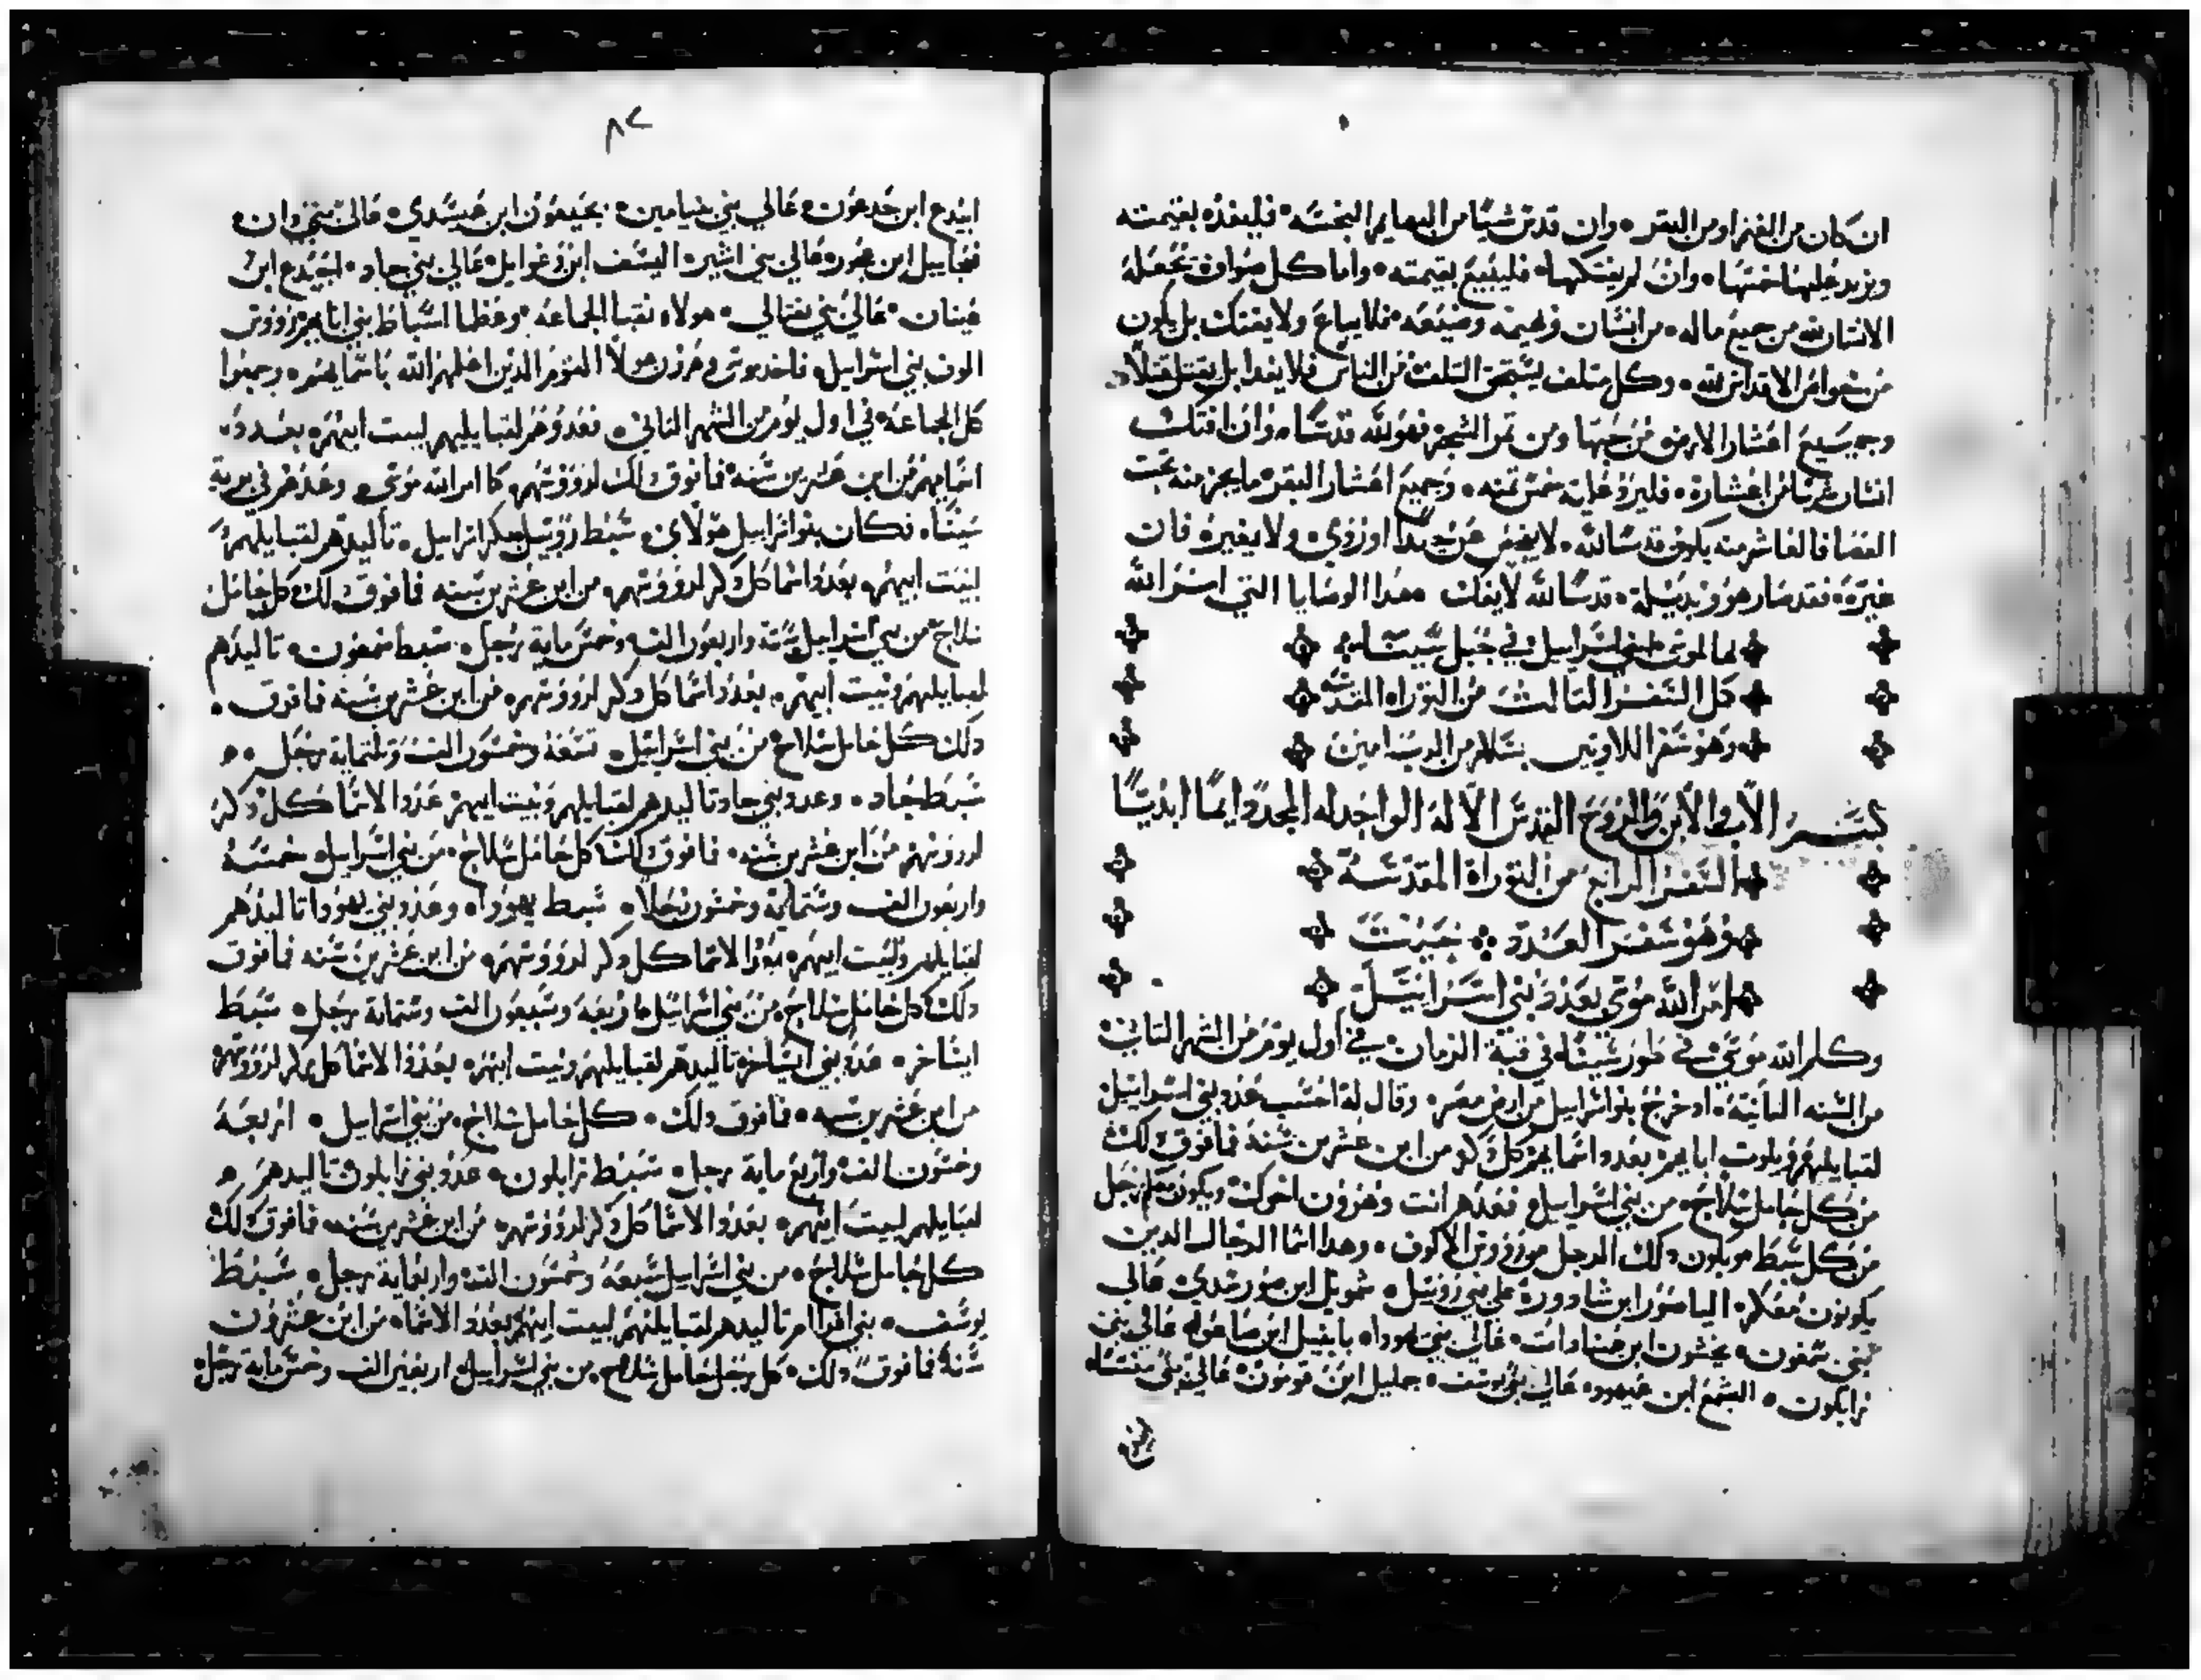 ان كان من الغنم او من البقر وان قدس شيا من البهايم النجسه فليفده بقيمته
ويزيد عليها خمسها وان لم يفتكها فليبيع بقيمته واما كل صوافى تجعله
الانسان لله من جميع ماله من انسان وبهيمه وضيعه فلا يباع ولا يفتك بل يكون
من خواص الاقداس لله وكل متلف يستحق التلف من الناس فلا يفدا بل يقتل قتلا
وجميع اعشار الارض من حبها ومن تمر الشجر فهو لله قدسا وان افتك
انسان شيا من اعشاره فليزد عليه خمس تمنه وجميع اعشار البقر ما يجز منه تحت
العصا فالعاشر منه يكون قدسا لله لا يفحص عن جيدا او ردي ولا يغيره فان
غيره فقد صار هو وبديله قدسا لله لا يفك هدا الوصايا التي امر الله
بها لموسى لبني اسراييل في جبل سينا
كمل السفر التالت من التوراه المقدسه
وهو سفر اللاويين بسلام من الرب امين
بسم الاب والابن والروح القدس الاله الواحد له المجد دايما ابديا
السفر الرابع من التوراة المقدسة
وهو سفر العدد حيت
امر الله موسى بعدد بني اسراييل
وكلم الله موسى في طور سينا في قبة الزمان في اول يوم من الشهر التاني
من السنه التانية اد خرج بنو اسراييل من ارض مصر وقال له احسب عدد بني اسراييل
لقبايلهم وبيوت ابايهم بعدد اسمايهم كل دكر من ابن عشرين سنة فما فوق دلك
من كل حامل سلاح من بني اسراييل فعدهم انت وهرون اخوك ويكون معكم رجل
من كل سبط ويكون دلك الرجل من روس الالوف وهدا اسما الرجال الدين
يكونون معكم الياصور ابن شادور على بني روبيل شمويل ابن صورشدي عالى
بني شمعون نحشون ابن عمناداب عالي بني يهودا ناتنيل ابن صاعور عالي بني
زابلون الشمع ابن عميهود عالي بني يوسف جمليل ابن عالي بني منسا
٨٢
ابيدع ابن جدعون عالي بني بنيامين ابن عميشدي عالى بني دان
فجاييل ابن عالي بني اشير اليسف ابن رعوايل عالي بني جاد ابن
عينان عالي بني نفتالي هولاء نقبا الجماعه وعظما اسباط بني ابايهم وروس
الوف بني اسراييل فاخد موسى وهرون هولا القوم الدين اعلمهم الله باسمايهم وجمعوا
كل الجماعة في اول يوم من الشهر التاني فعدوهم لقبايلهم لبيت ابيهم بعدد
اسمايهم من ابن عشرين سنه فما فوق دلك لرووسهم كما امر الله موسى وعدهم في برية
سينا فكان بنو اسراييل هولاي سبط روبيل بكر اسراييل تاليدهم لقبايلهم
لبيت ابيهم بعدد اسما كل دكر لرووسهم من ابن عشرين سنه فما فوق دلك كل حامل
سلاح من بني اسراييل ستة واربعون الف وخمس ماية رجل سبط شمعون تاليدهم
لقبايلهم وبيت ابيهم بعدد اسما كل دكر لرووسهم من ابن عشرين سنه فما فوق
دلك كل حامل سلاح من بني اسراييل تسعة وخمسون الف وتلتماية رجل
سبط جاد وعدد بني جاد وتاليدهم لقبايلهم وبيت ابيهم عددوا الاسما كل دكر
لرووسهم من ابن عشرين سنه فما فوق دلك كل حامل سلاح من بني اسراييل خمسة
واربعون الف وستماية وخمسون رجلا سبط يهودا وعدد بني يهودا تاليدهم
لقبايلهم ولبيت ابيهم بعدد الاسما كل دكر لرووسهم من ابن عشرين سنه فما فوق
دلك كل حامل سلاح من بني اسراييل اربعة وسبعون الف وستماية رجل سبط
ايساخر عدد بني ايساخر تاليدهم لقبايلهم وبيت ابيهم بعدد الاسما كل دكر لرووسهم
من ابن عشرين سنه فما فوق دلك كل حامل سلاح من بني اسراييل اربعة
وخمسون الف واربع ماية رجل سبط زابلون عدد بني زابلون تاليدهم
لقبايلهم لبيت ابيهم بعدد الاسما كل دكر لرووسهم من ابن عشرين سنه فما فوق دلك
كل حامل سلاح من بني اسراييل سبعة وخمسون الف واربعماية رجل سبط
يوسف بني افرام تاليدهم لقبايلهم لبيت ابيهم بعدد الاسما من ابن عشرون
سنة فما فوق دلك كل رجل حامل سلاح من بني اسراييل اربعين الف وخمس ماية رجل